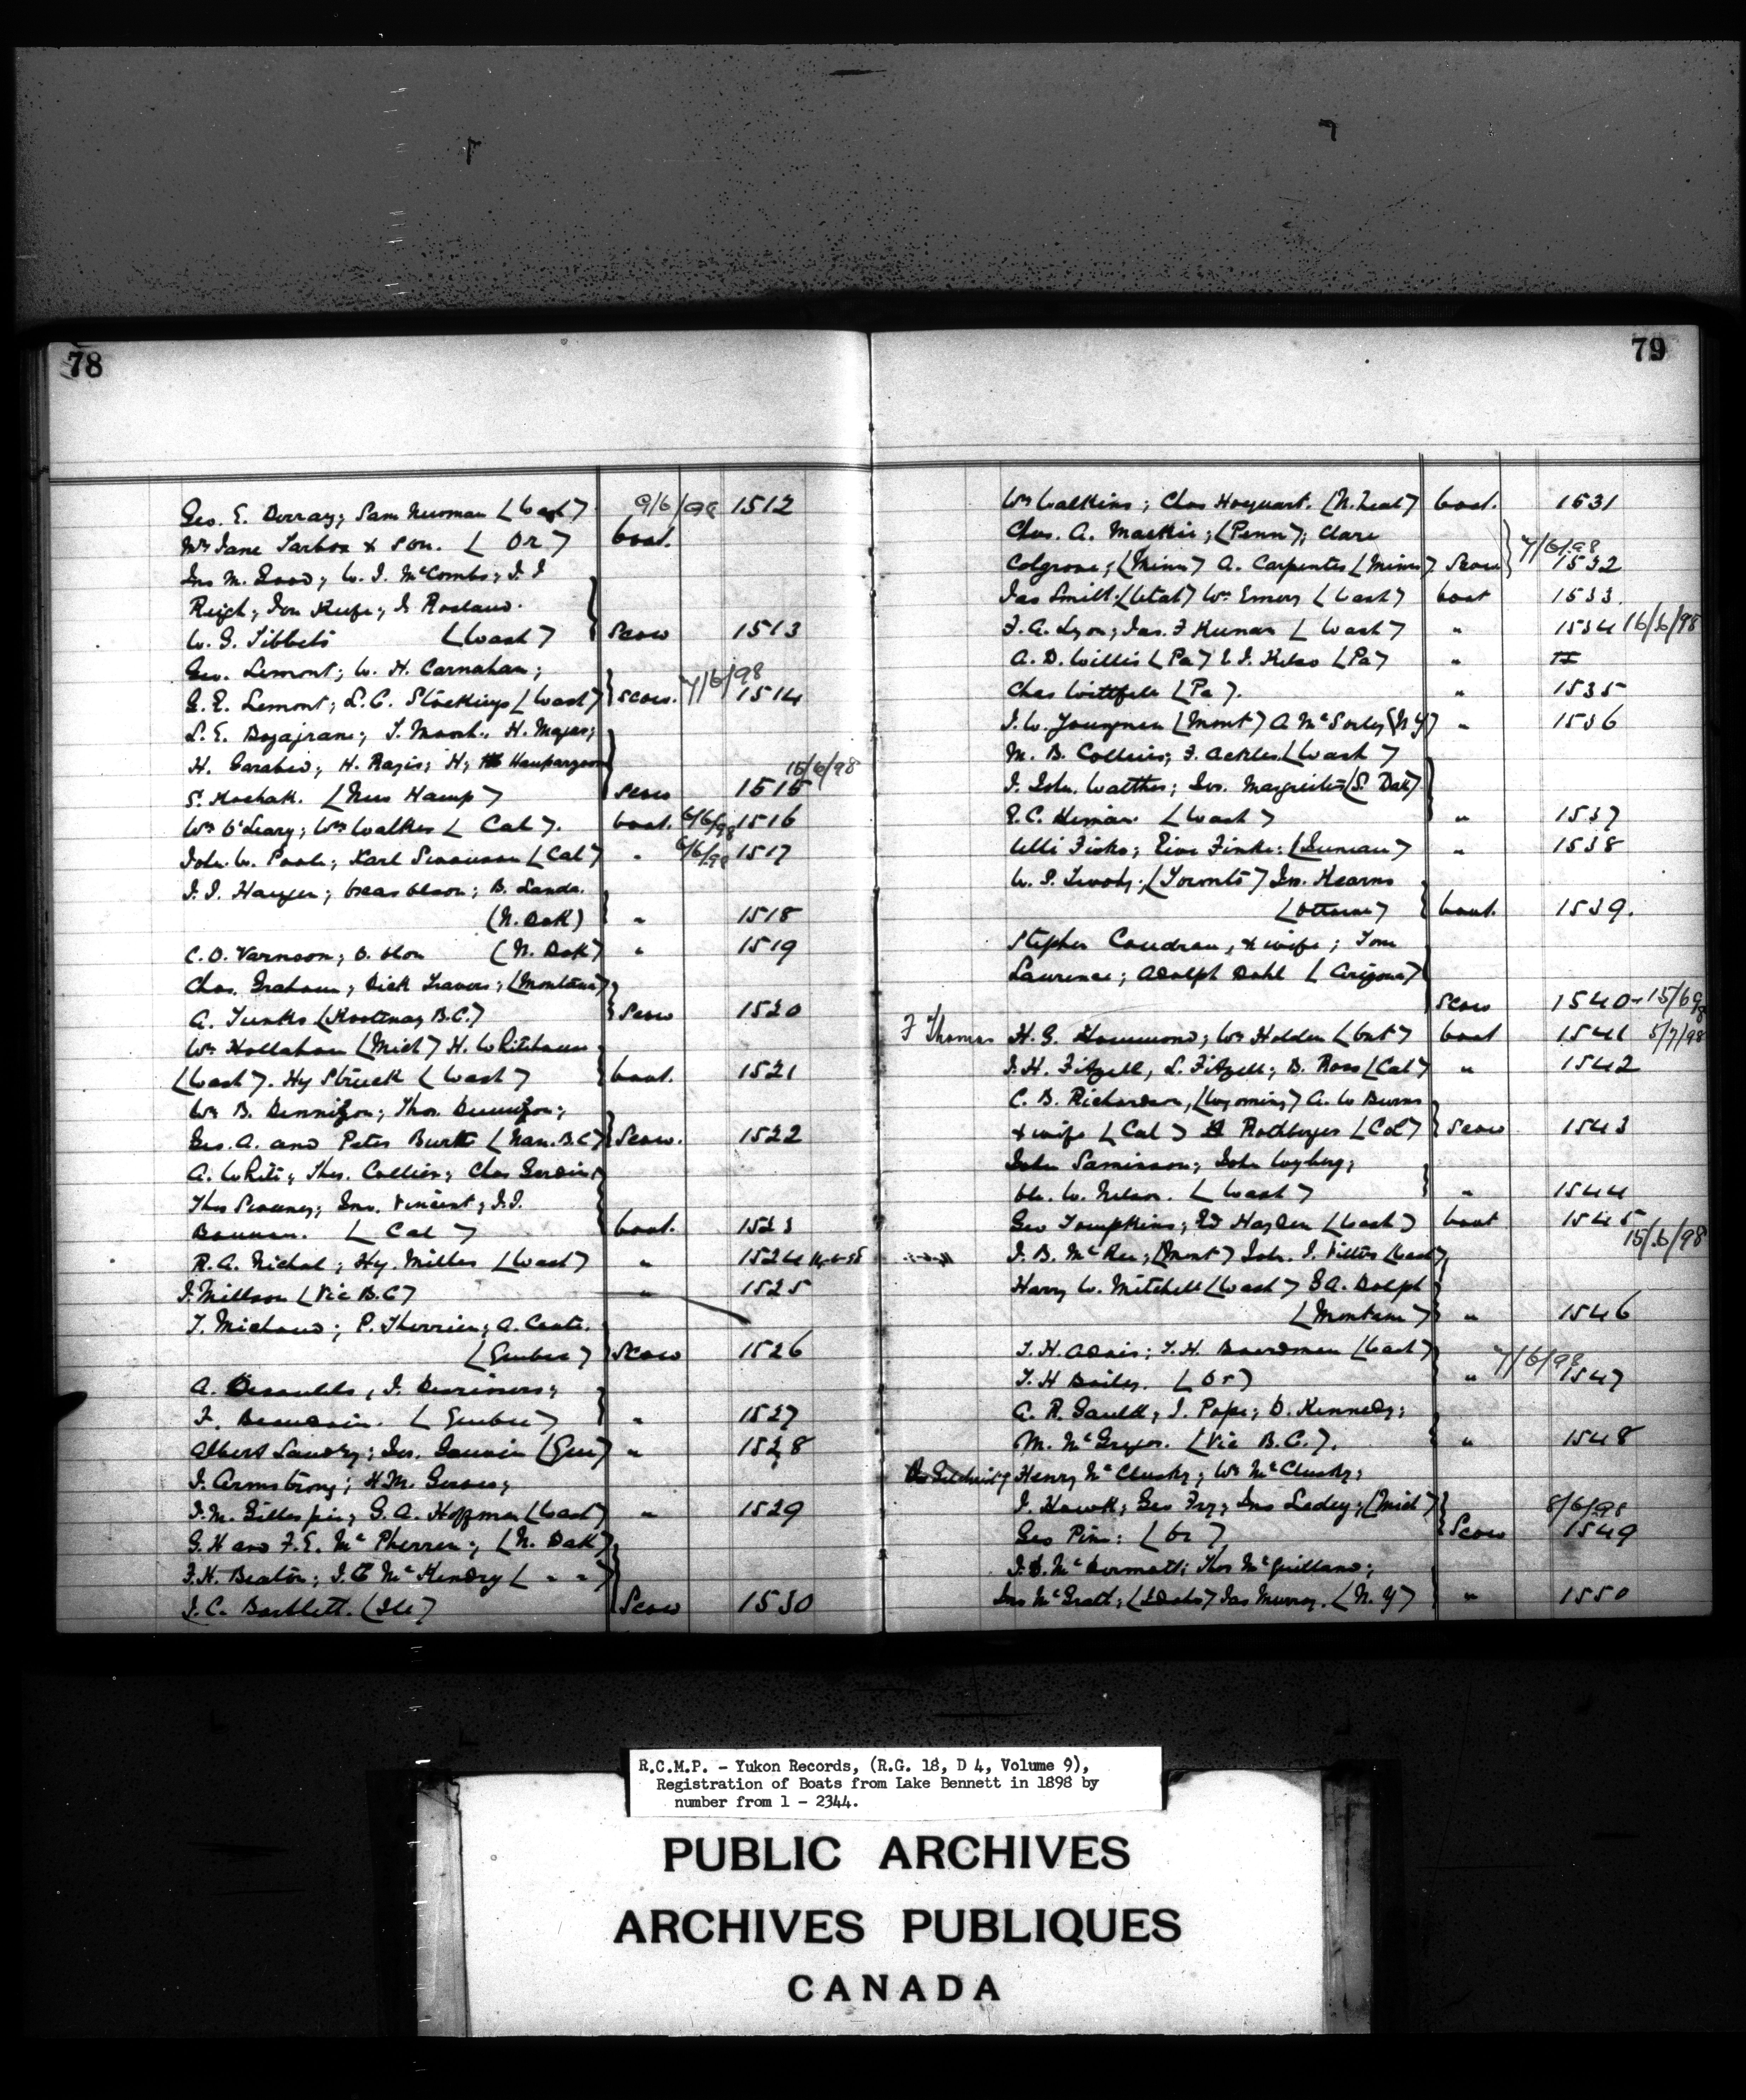 78
Geo. E. Dorray; Sam Newman (Wash) 9/6/98 1512
Mrs Jane Tarbox & son. ( Or ) boat.
Jno M. Good; W. J. McCombs; J. J
Reigh; Jon Keefe; J.
W. G. Tibbets (Wash) Scow 1513
Geo. Lemont; W. H. Carnahan;
G. E. Lemont; L. C. Stockings (Wash) Scow. 7/6/98 1514
L. E. Bozajrane; T. H. Mayas;
H. Garabed; H. Razis; H;
S. Kochak. (New Hamp) Scow 1515 15/6/98
Wm O'Leary; Wm Walker ( Cal ). boat. 6/6/98 1516
John W. Poole; Karl Swanson (Cal) " 6/6/98 1517
J. J. Haugen; Olson; B. Lande.
(N. Dak) " 1518
C. O. Varnson; O. Olson (N. Dak) " 1519
Chas. Graham; Dick Travers; (Montana)
A. Tunks (Kootenay B.C.) Scow 1520
Wm Hollahan (Mich) H. Whitehouse
(Wash). Hy Struck (Wash) boat. 1521
Wm B. Dennison; Thos. Dennison;
Geo. A. and Peter Burtt (Nan. B.C) Scow. 1522
A. White; Thos. Collier; Chas
Thos Sweeney; Jno. Vincent; J. J.
Bauman. ( Cal ) boat. 1523
R. A. Nichol; Hy. Miller (Wash) " 1524 14-6-98
J. Millson (Vic B.C) " 1525
T. Michaud; P. Therrien; A. Coate.
(Quebec) Scow 1526
A. Desaulels; J.
F. Beaudoin. (Quebec) " 1527
Albert Landry; Jos. Gauvin (Que) " 1528
J. Armstrong; H. M. Groves;
J. M. Gillespie; G. A. Hoffman (Wash) " 1529
G. H and F. E. McPherren; (N. Dak)
F. H. Beaton; J. C McKendry ( " " )
J. C. Bartlett. (Ill) Scow 1530
79
Wm Walkins; Chas Hoequart. (N. Zeal) boat. 1531
Chas. A. Mackie; (Penn); Clare
Colgrove; (Minn) A. Carpenter (Minn) Scow 7/6/98 1532
Jas Smith; (Utah) Wm Emery (Wash) boat 1533
F. A. Lyon; Jas. F Keenan (Wash) " 1534 16/6/98
A. D. Willis (Pa) E. J. Kelso (Pa) "
Chas (Pa). " 1535
J. W. Youngman (Mont) A McSorley (N. Y) " 1536
M. B. Collins; F. Ackles (Wash)
J. John. Walther; Jos. Margreiter (S. Dak)
E. C. Himan (Wash) " 1537
Ulli Finke; Eive Finke: (Juneau) " 1538
W. S. (Toronto) Jno. Kearns
(Ottawa) boat. 1539.
Stephen Caudron, & wife; Tom
Laurence; Adolph Dahl (Arizona)
Scow 1540 - 15/6/98
F Thomas H. G. Hammond; Wm Holden (Ont) boat 1541 5/7/98
J. H. Fitzell, L. Fitzell; D. Ross (Cal) " 1542
C. B. Richardson, (Wyoming) A. W Burns
& wife (Cal) Rodburger (Col) Scow 1543
John Saminson; John Wyberg;
Ole. W. Nelson. (Wash) " 1544
Geo Tompkins; Ed Hayden (Wash) boat 1545
J. B. McRee; (Mont) John. J. Vittos (Wash) 15/6/98
Harry W. Mitchell (Wash) E A. Dolph
(Montana) " 1546
T. H. Adair; T. H. Boardman (Wash)
T. H Bailey. (Or) " 7/6/98 1547
A. R. Gauld; J. Pope; D. Kennedy;
M. McGregor. (Vic B.C.). " 1548
Henry McClusky; Wm McClusky;
J. Hawk; Geo Fry; Jno Ledey; (Mich)
Geo Pim: (Or) Scow 8/6/98 1549
J. D. McDermott; Thos McQuilland;
Jno McGrath; (Idaho) Jas Murray. (N. Y) " 1550
R.C.M.P. - Yukon Records, (R.G. 18, D 4, Volume 9),
Registration of Boats from Lake Bennett in 1898 by
number from 1 - 2344.
PUBLIC ARCHIVES
ARCHIVES PUBLIQUES
CANADA